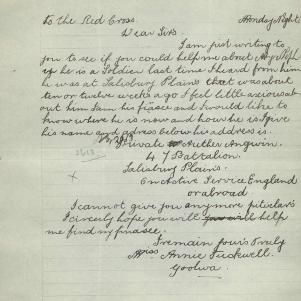 To the Red Cross. Monday Night
Dear Sirs
I am just writing to
you to see if you could help me about My
if he is a Soldier last time I heard from him
he was at Salisbury Plains that was about
ten or twelve weeks ago I feel little anxious ab
out him I am his fiasce and I would like to
know where he is now and how he is I give
his name and adress below his address is.
Private Auther Angwin.
47 Battalion.
Salisbury Plains.
Service England
or abroad
I cannot give you anymore
I hope you will help
me find my fiasce.
I remain yours Truly
Miss Annie Tuckwell.
Goolwa.